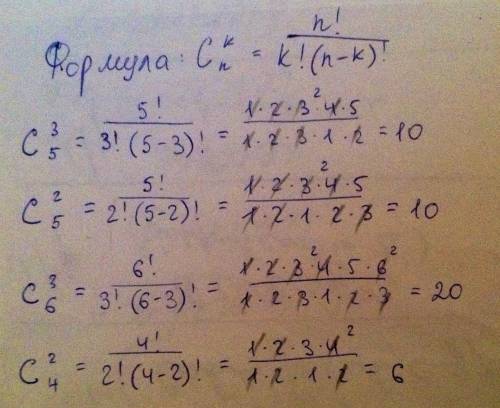 Формула: C_n^k = n! / k!(n-k)!
C_5^3 = 5! / 3!(5-3)! = 1·2·3·4²·5 / 1·2·3·1·2 = 10
C_5^2 = 5! / 2!(5-2)! = 1·2·3·4²·5 / 1·2·1·2·3 = 10
C_6^3 = 6! / 3!(6-3)! = 1·2·3·4²·5·6² / 1·2·3·1·2·3 = 20
C_4^2 = 4! / 2!(4-2)! = 1·2·3·4² / 1·2·1·2 = 6